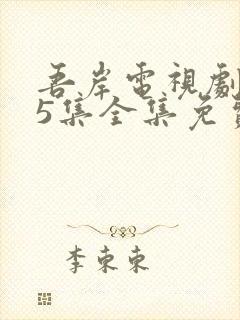 吾岸電視劇
5集全集免
李東東